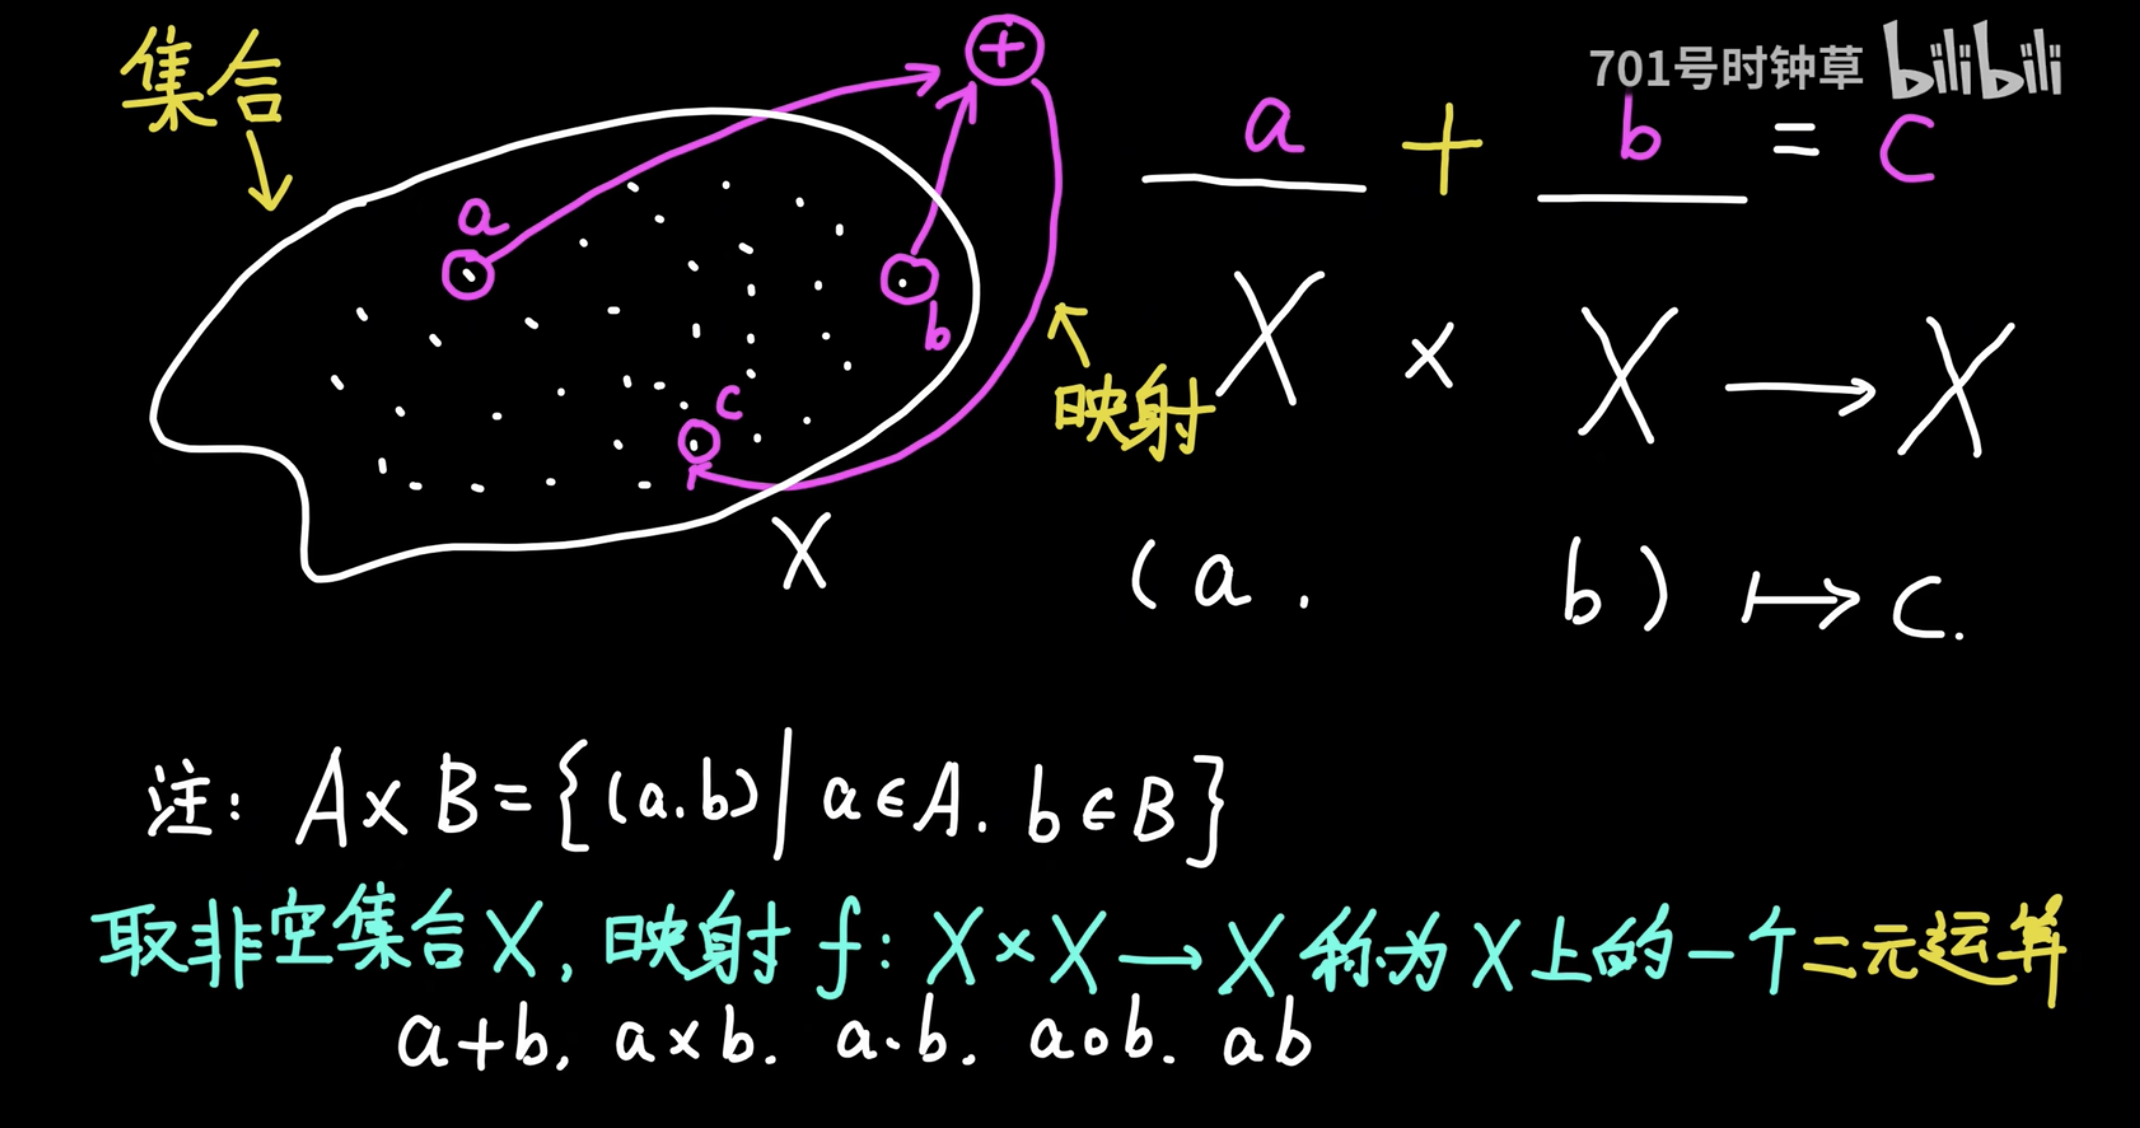 集合
⊕
701号时钟草 bilibili
a + b = c
a
b
c
映射
X × X → X
X
(a. b) ↦ c.
注: A×B={(a.b)|a∈A. b∈B}
取非空集合X, 映射 f: X×X→X 称为X上的一个二元运算
a+b, a×b. a·b. a∘b. ab